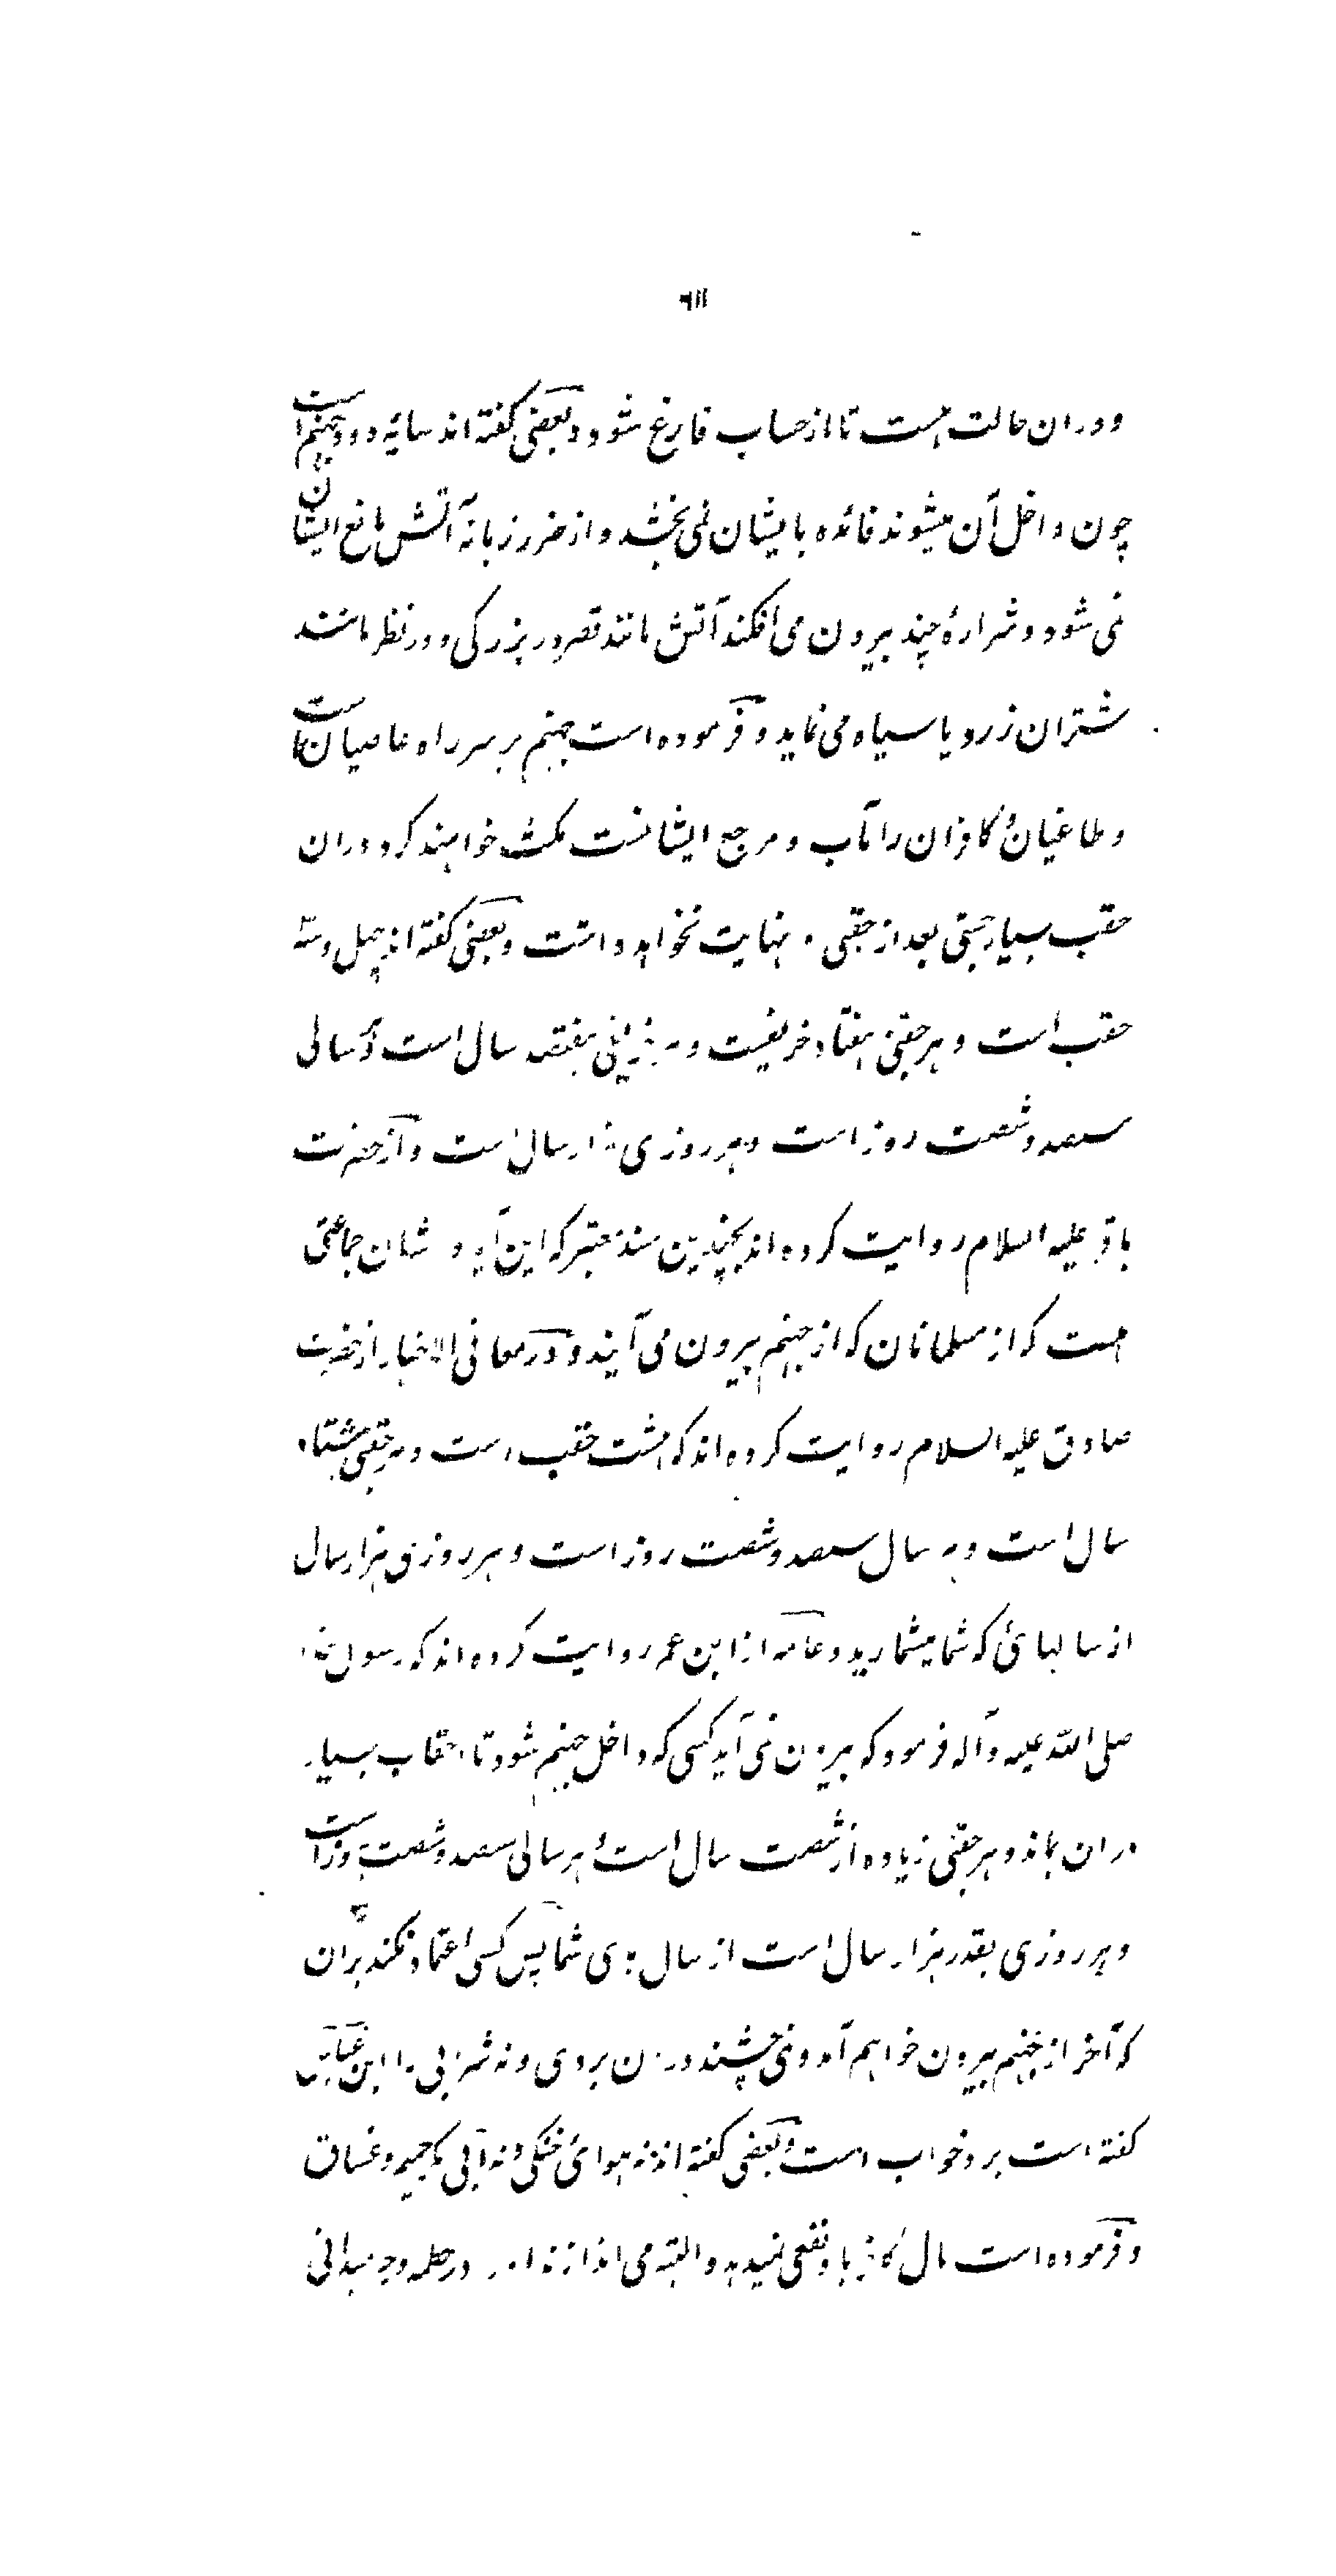 ۶۱۱
و در ان حالت هست تا از حساب فارغ شود و بعضی گفته اند سایهٔ دود جهنم است
چون داخل آن میشوند فائده بایشان نمی بخشد و از ضرر زبانهٔ آتش مانع ایشان
نمی شود و شرارهٔ چند بیرون می افکند آتش مانند قصر در بزرگی و در نظر مانند
شتران زرد یا سیاه می نماید و فرموده است جهنم بر سر راه عاصیان است
و طاغیان و کافران را مآب و مرجع ایشانست مکث خواهند کرد در ان
حقب بسیار حقبی بعد از حقبی نهایت نخواهد داشت و بعضی گفته اند چهل و سه
حقب است و هر حقبی هفتاد خریفست و هر خریفی هفتصد سال است و هر سالی
سیصد و شصت روز است و هر روزی هزار سال است و از حضرت
باقر علیه السلام روایت کرده اند بچندین سند معتبر که این آیه در شان جماعتی
هست که از مسلمانان که از جهنم بیرون می آیند و در معانی الاخبار از حضرت
صادق علیه السلام روایت کرده اند که هشت حقب است و هر حقبی هشتاد
سال است و هر سال سیصد و شصت روز است و هر روزی هزار سال
از سالهائ که شما میشمارید و عامه از ابن عمر روایت کرده اند که رسول خدا
صلی الله علیه و آله فرمود که بیرون نمی آید کسی که داخل جهنم شود تا احقاب بسیار
در ان بماند و هر حقبی زیاده از شصت سال است و هر سالی سیصد و شصت روز است
و هر روزی بقدر هزار سال است از سال های شما پس کسی اعتماد نکند بر ان
که آخر از جهنم بیرون خواهیم آمد و نمی چشند در ان بردی و نه شرابی را ابن عباس
گفته است برد خواب است و بعضی گفته اند نه هوائ خنکی و نه آبی مگر حمیم و غساق
و فرموده است مال کافر باو نفعی نمیدهد و البته می اندازند او را در حطمه و چه میدانی